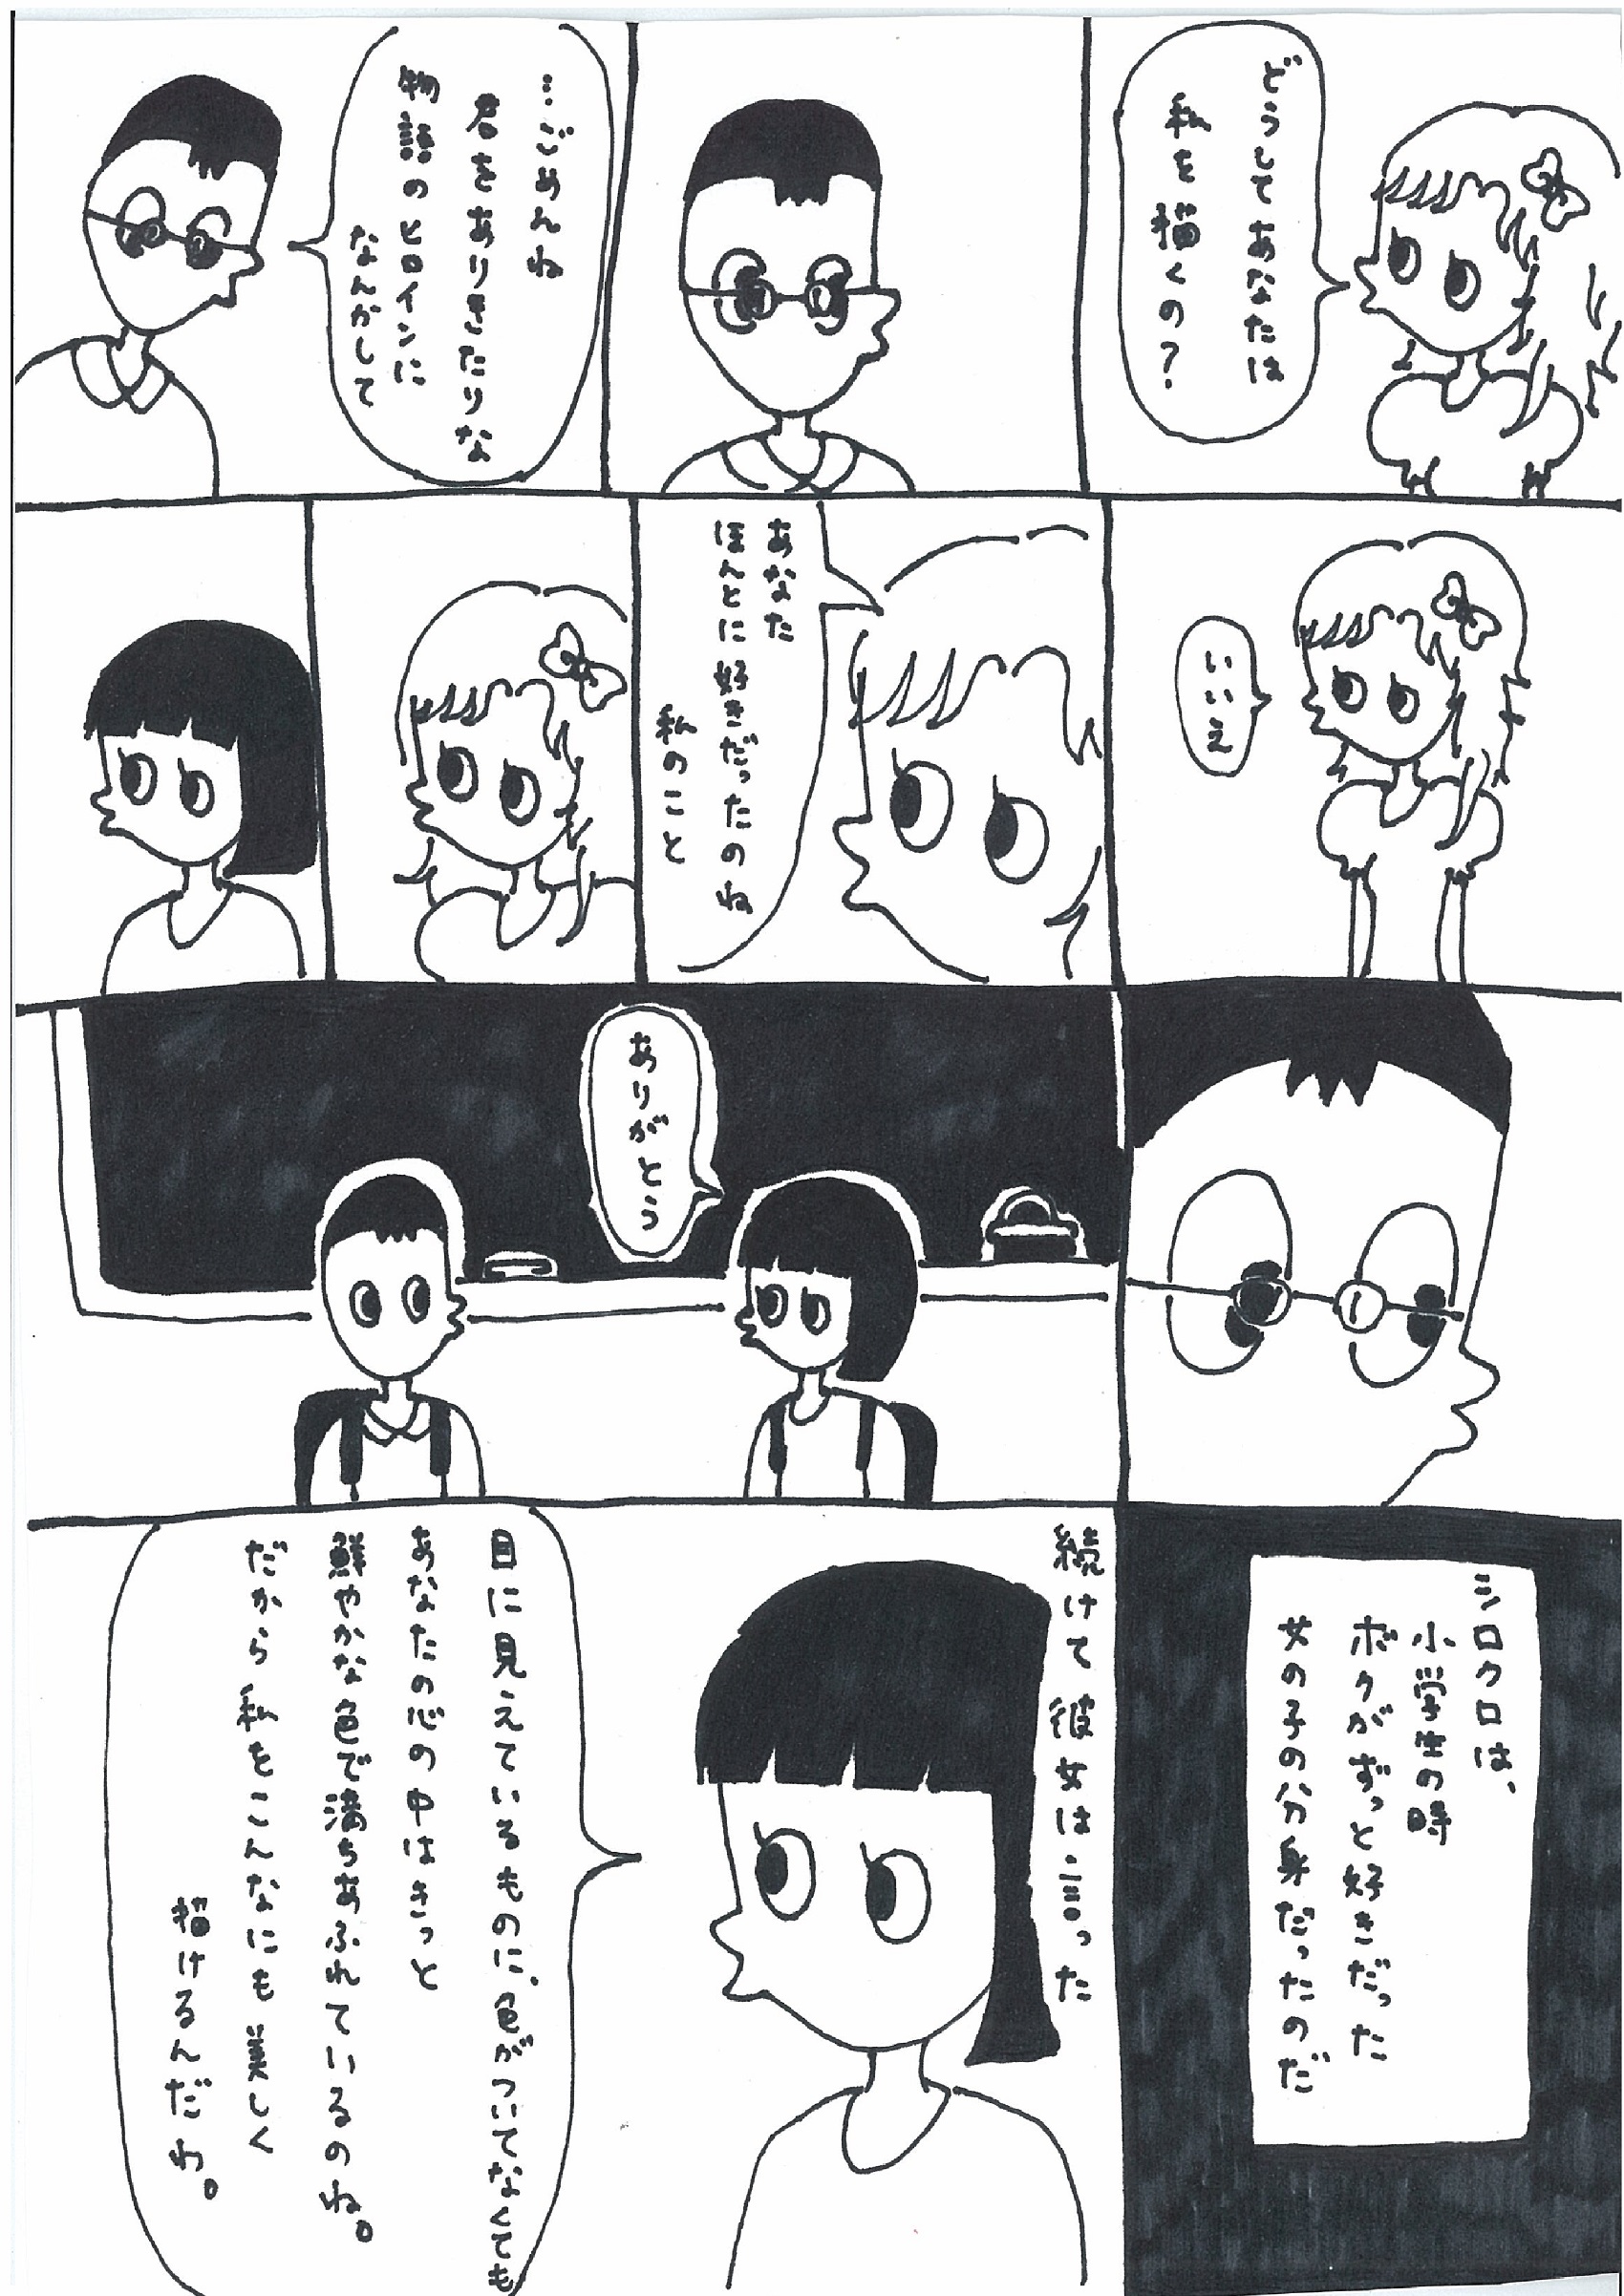 どうしてあなたは
私を描くの？
…ごめんね
君をありきたりな
物語のヒロインに
なんかして
いいえ
あなた
ほんとに好きだったのね
私のこと
ありがとう
シロクロは、
小学生の時
ボクがずっと好きだった
女の子の分身だったのだ
続けて彼女は言った
目に見えているものに、色がついてなくても
あなたの心の中はきっと
鮮やかな色で満ちあふれているのね。
だから私をこんなにも美しく
描けるんだわ。